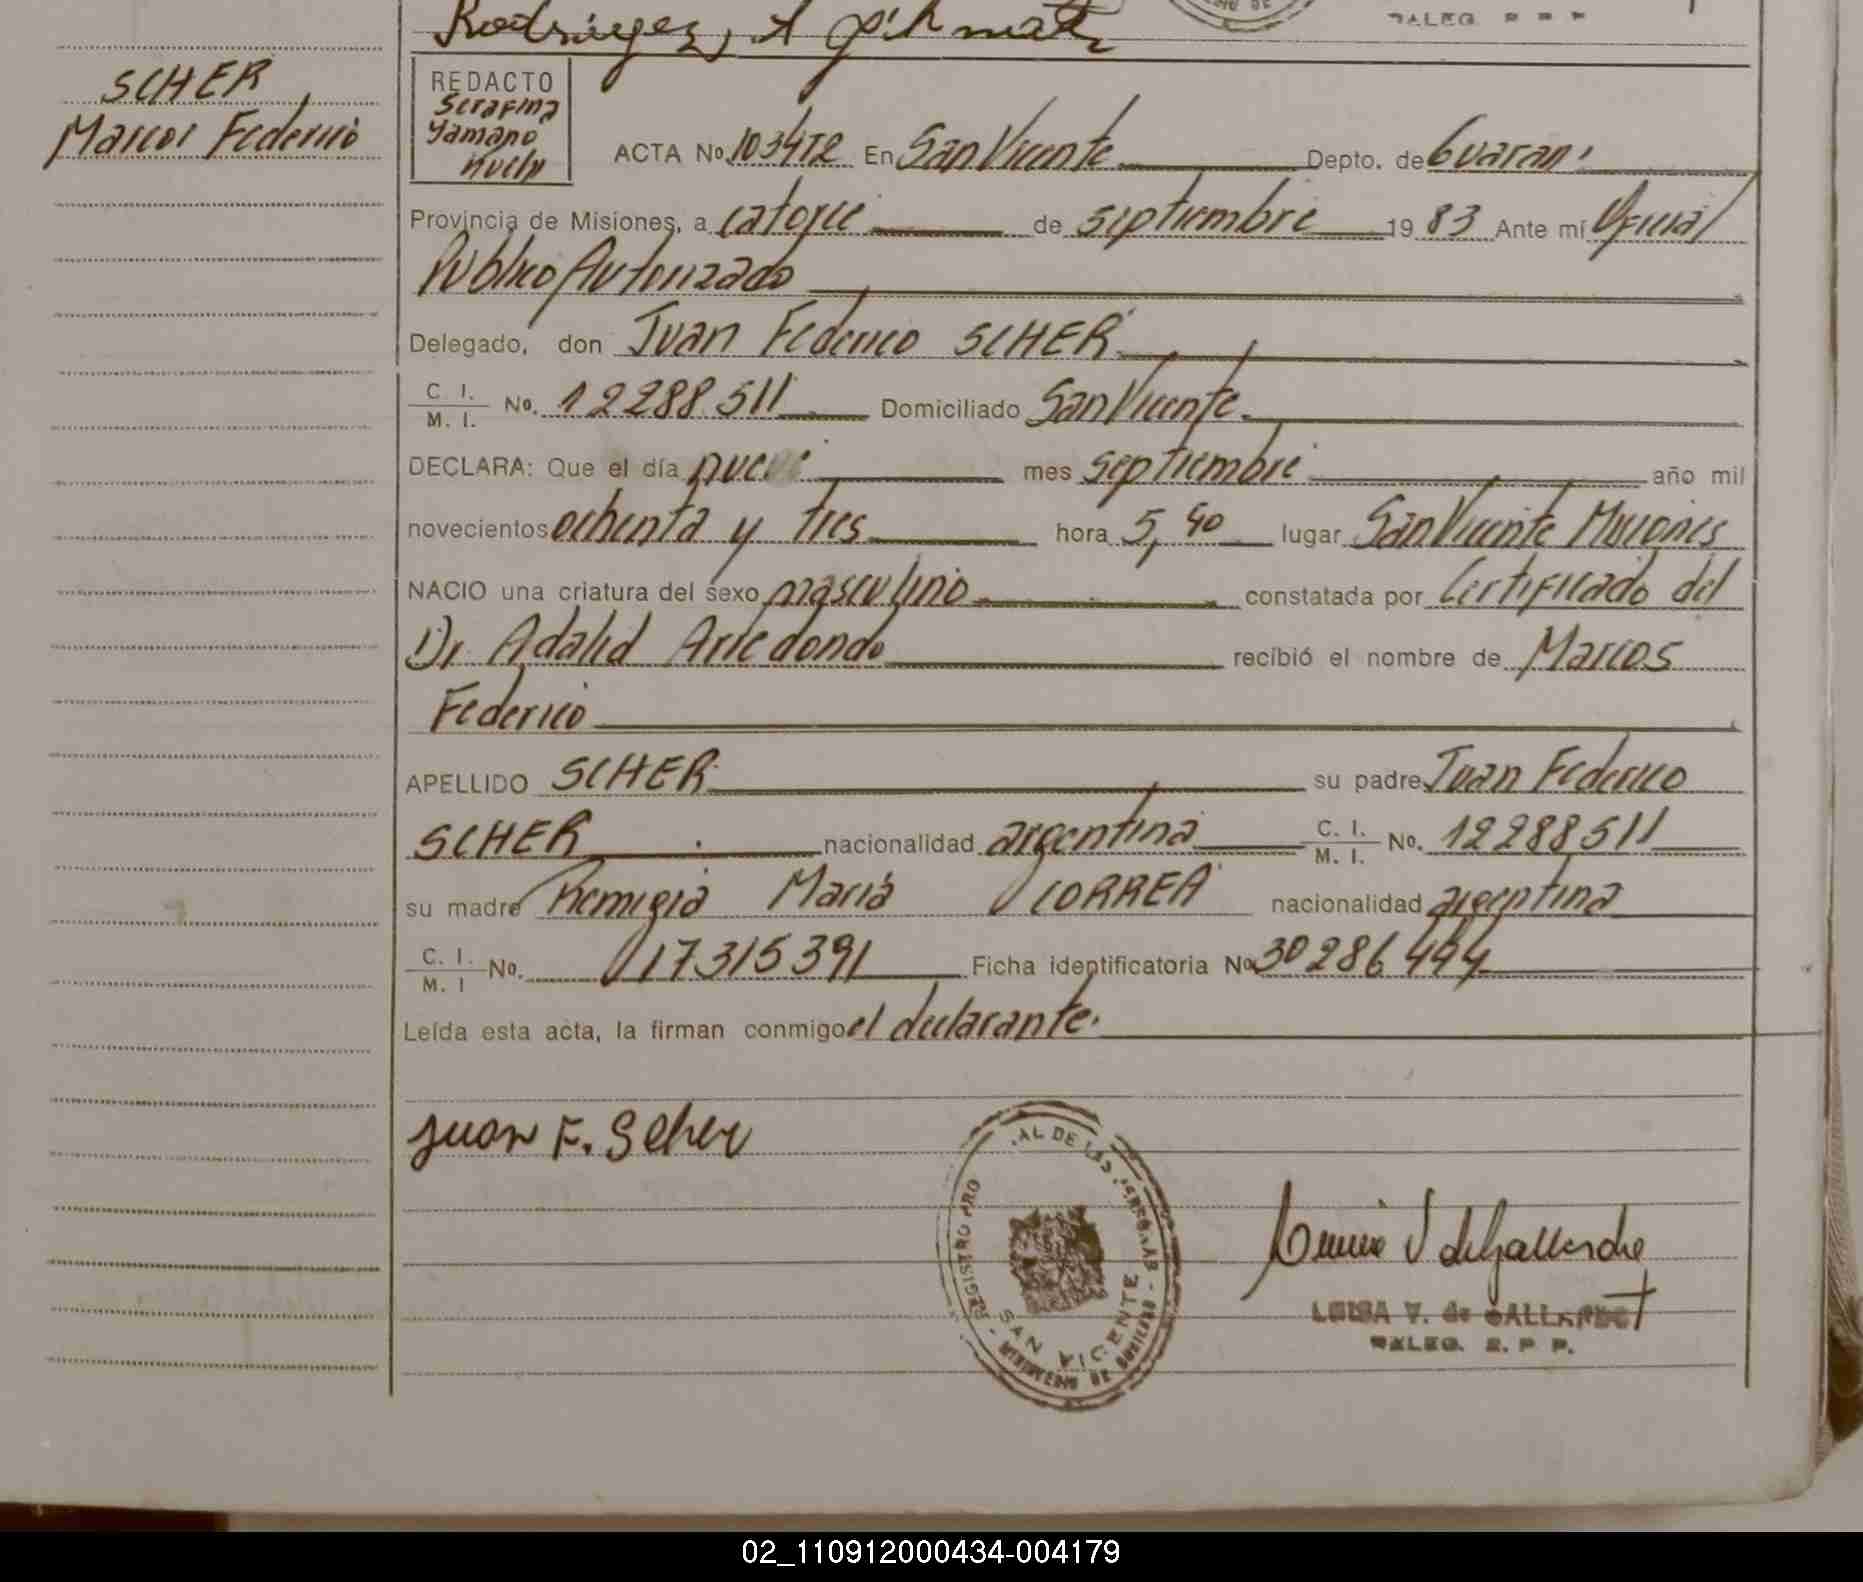 Rodriguez, A
DALEG. R P P
SCHER
Marcos Federico
REDACTO
Serafina
Yamano
ACTA No. 1034T2 En San Vicente Depto. de Guarani
Provincia de Misiones, a catorce de septiembre 1983 Ante mí Oficial
Publico Autorizado
Delegado, don Juan Federico SCHER
C. I. / M. I. No. 12288511 Domiciliado San Vicente.
DECLARA: Que el día nueve mes septiembre año mil
novecientos ochenta y tres hora 5,40 lugar San Vicente Misiones
NACIO una criatura del sexo masculino constatada por Certificado del
Dr Adalid Arredondo recibió el nombre de Marcos
Federico
APELLIDO SCHER su padre Juan Federico
SCHER nacionalidad argentina C. I. / M. I. No. 12288511
su madre Remigia Maria CORREA nacionalidad argentina
C. I. / M. I No. 17315391 Ficha identificatoria No 30286494
Leída esta acta, la firman conmigo el declarante.
Juan F. Scher
REGISTRO PRO AL DE LAS PERSONAS
SAN VICENTE
V de Gallardo
LUISA V. de GALLARDO
DALEG. R. P P.
02_110912000434-004179